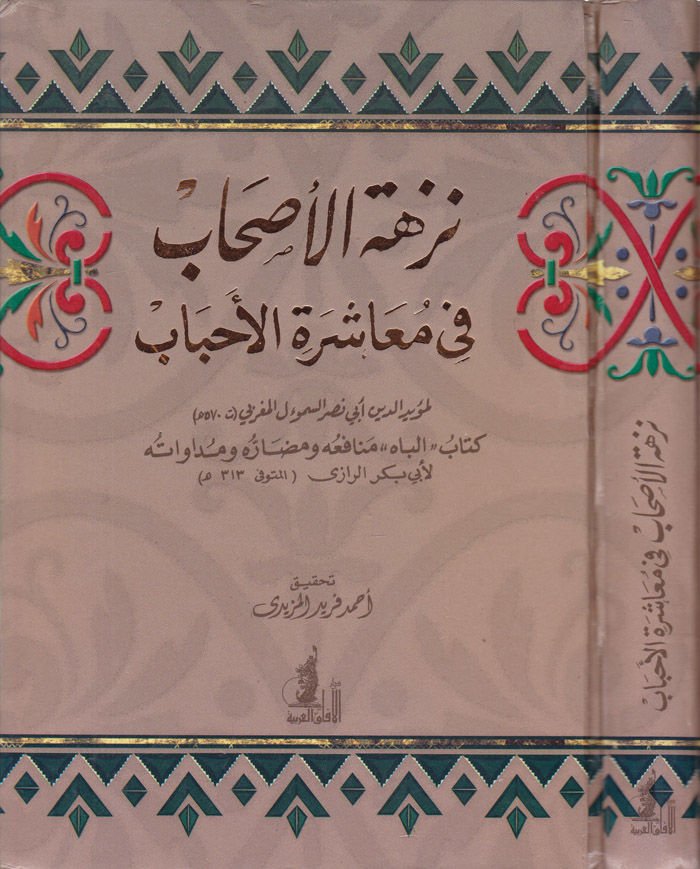 نزهة الأصحاب
في مُعَاشرَة الأحبَاب
لمؤيد الدين أبي نصر السموءل المغربي (ت ٥٧٠هـ)
كتابُ "الباه" مَنافعُه ومضارُّه ومُداواتُه
لأبي بكر الرازى (المتوفى ٣١٣ هـ)
تحقيق
أحمد فريد المزيدى
دار
الآفاق العربية
نزهة الأصحاب في مُعَاشرَة الأحبَاب
الآفاق العربية